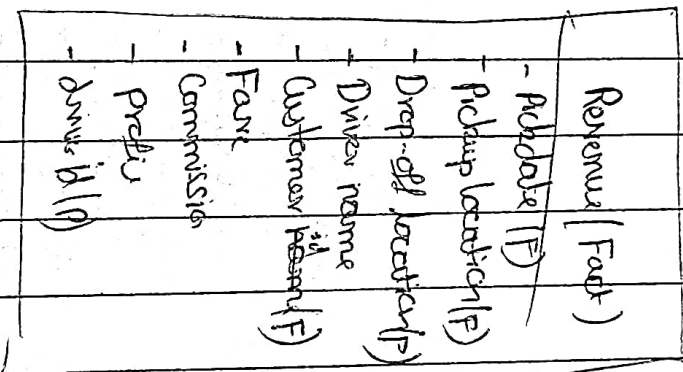 Revenue (Fact)
- Pickdate (F)
- Pickup location (F)
- Drop-off location (P)
- Driver name
- Customer id (F)
- Fare
- Commissio
- Profit
- id (P)